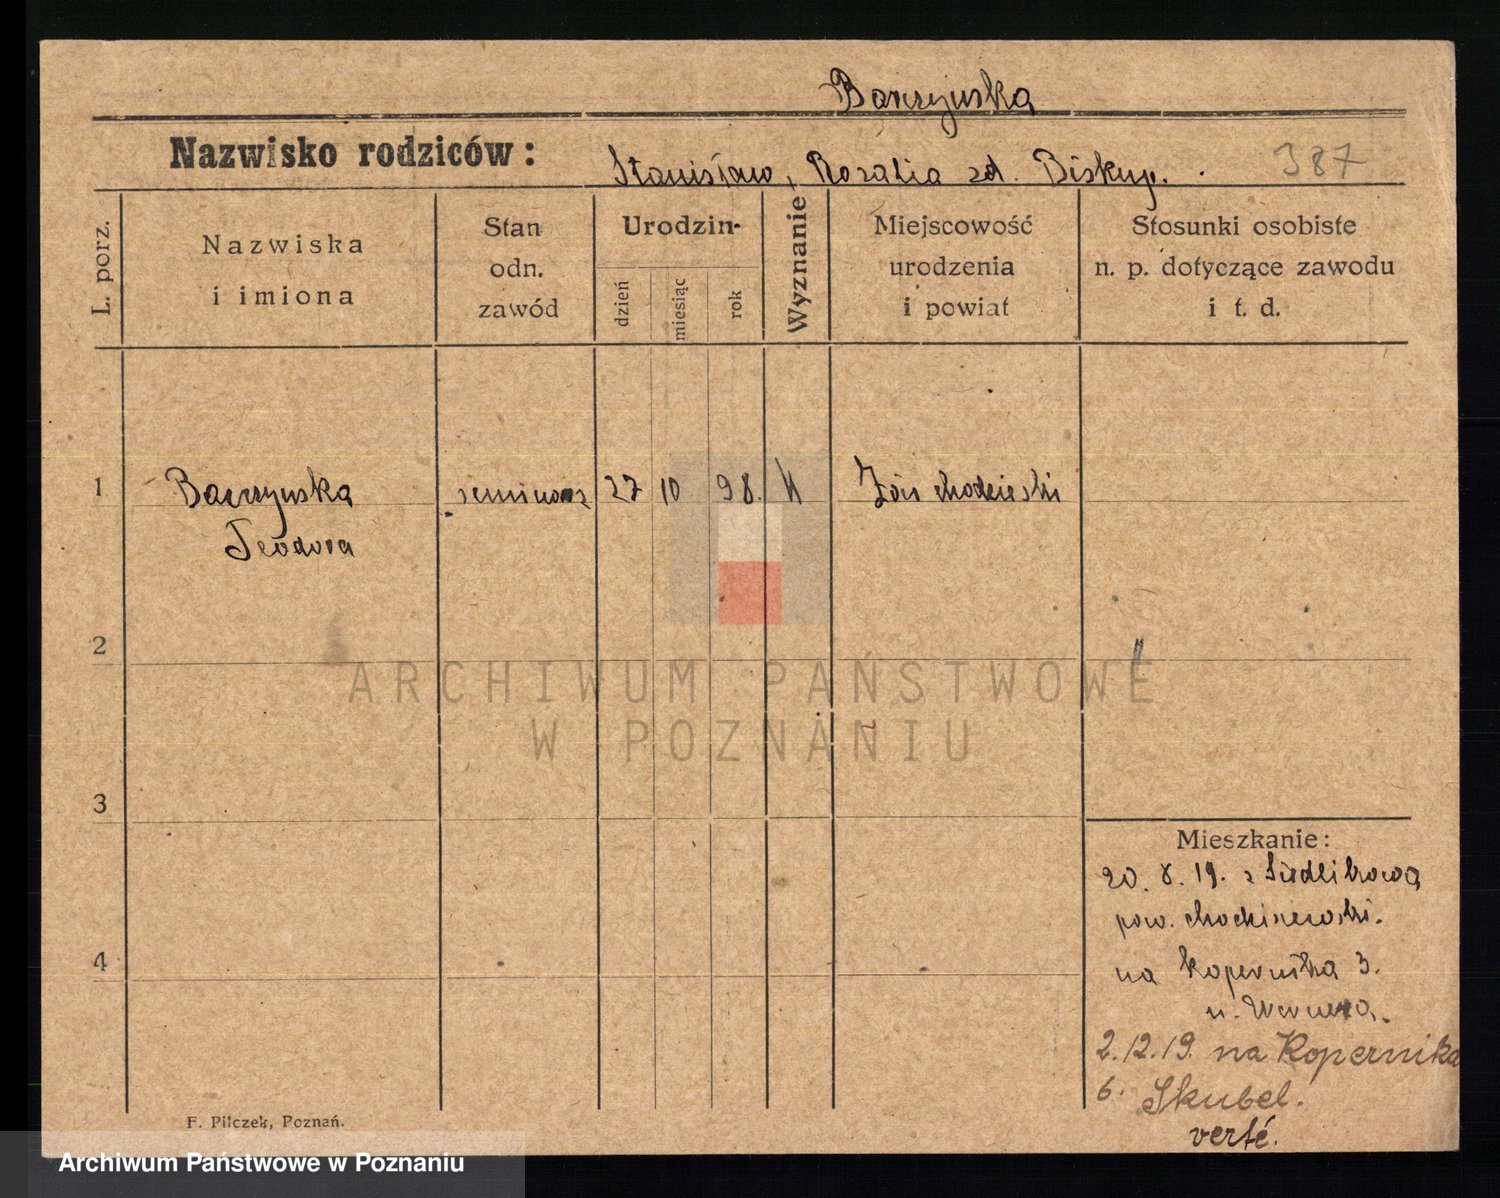 Barczyńska
Nazwisko rodziców:
Stanisław, Rozalia zd. Biskup.
387
L. porz.
Nazwiska
i imiona
Stan
odn.
zawód
Urodzin
dzień
miesiąc
rok
Wyznanie
Miejscowość
urodzenia
i powiat
Stosunki osobiste
n. p. dotyczące zawodu
i t. d.
1
Barczyńska 27 10 98. chodzieski
Teodora
2
ARCHIWUM PAŃSTWOWE
W POZNANIU
3
4
Mieszkanie:
20. 8. 19. z Siedlikowa
pow.
na Kopernika 3.
u. Wernera.
2.12.19. na Kopernika
6. Skubel.
verté.
F. Pilczek, Poznań.
Archiwum Państwowe w Poznaniu